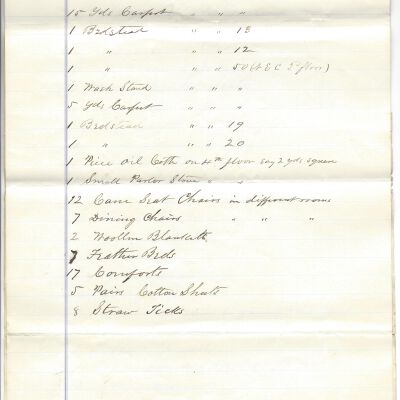 15 Yds Carpet " " "
1 Bedstead " " 13
1 " " " 12
1 " " " 50 (A & C 5th floor)
1 Wash Stand " " "
5 Yds Carpet " " "
1 Bedstead " " 19
1 " " " 20
1 Nice Oil Coth on 4th floor say 2 yds square
1 Small Parlor Stove " "
12 Cane Seat Chairs in different rooms
7 Dining Chairs " " "
2 Woollen Blankets
7 Feather Beds
17 Comforts
5 Pairs Cotton Sheets
8 Straw Ticks